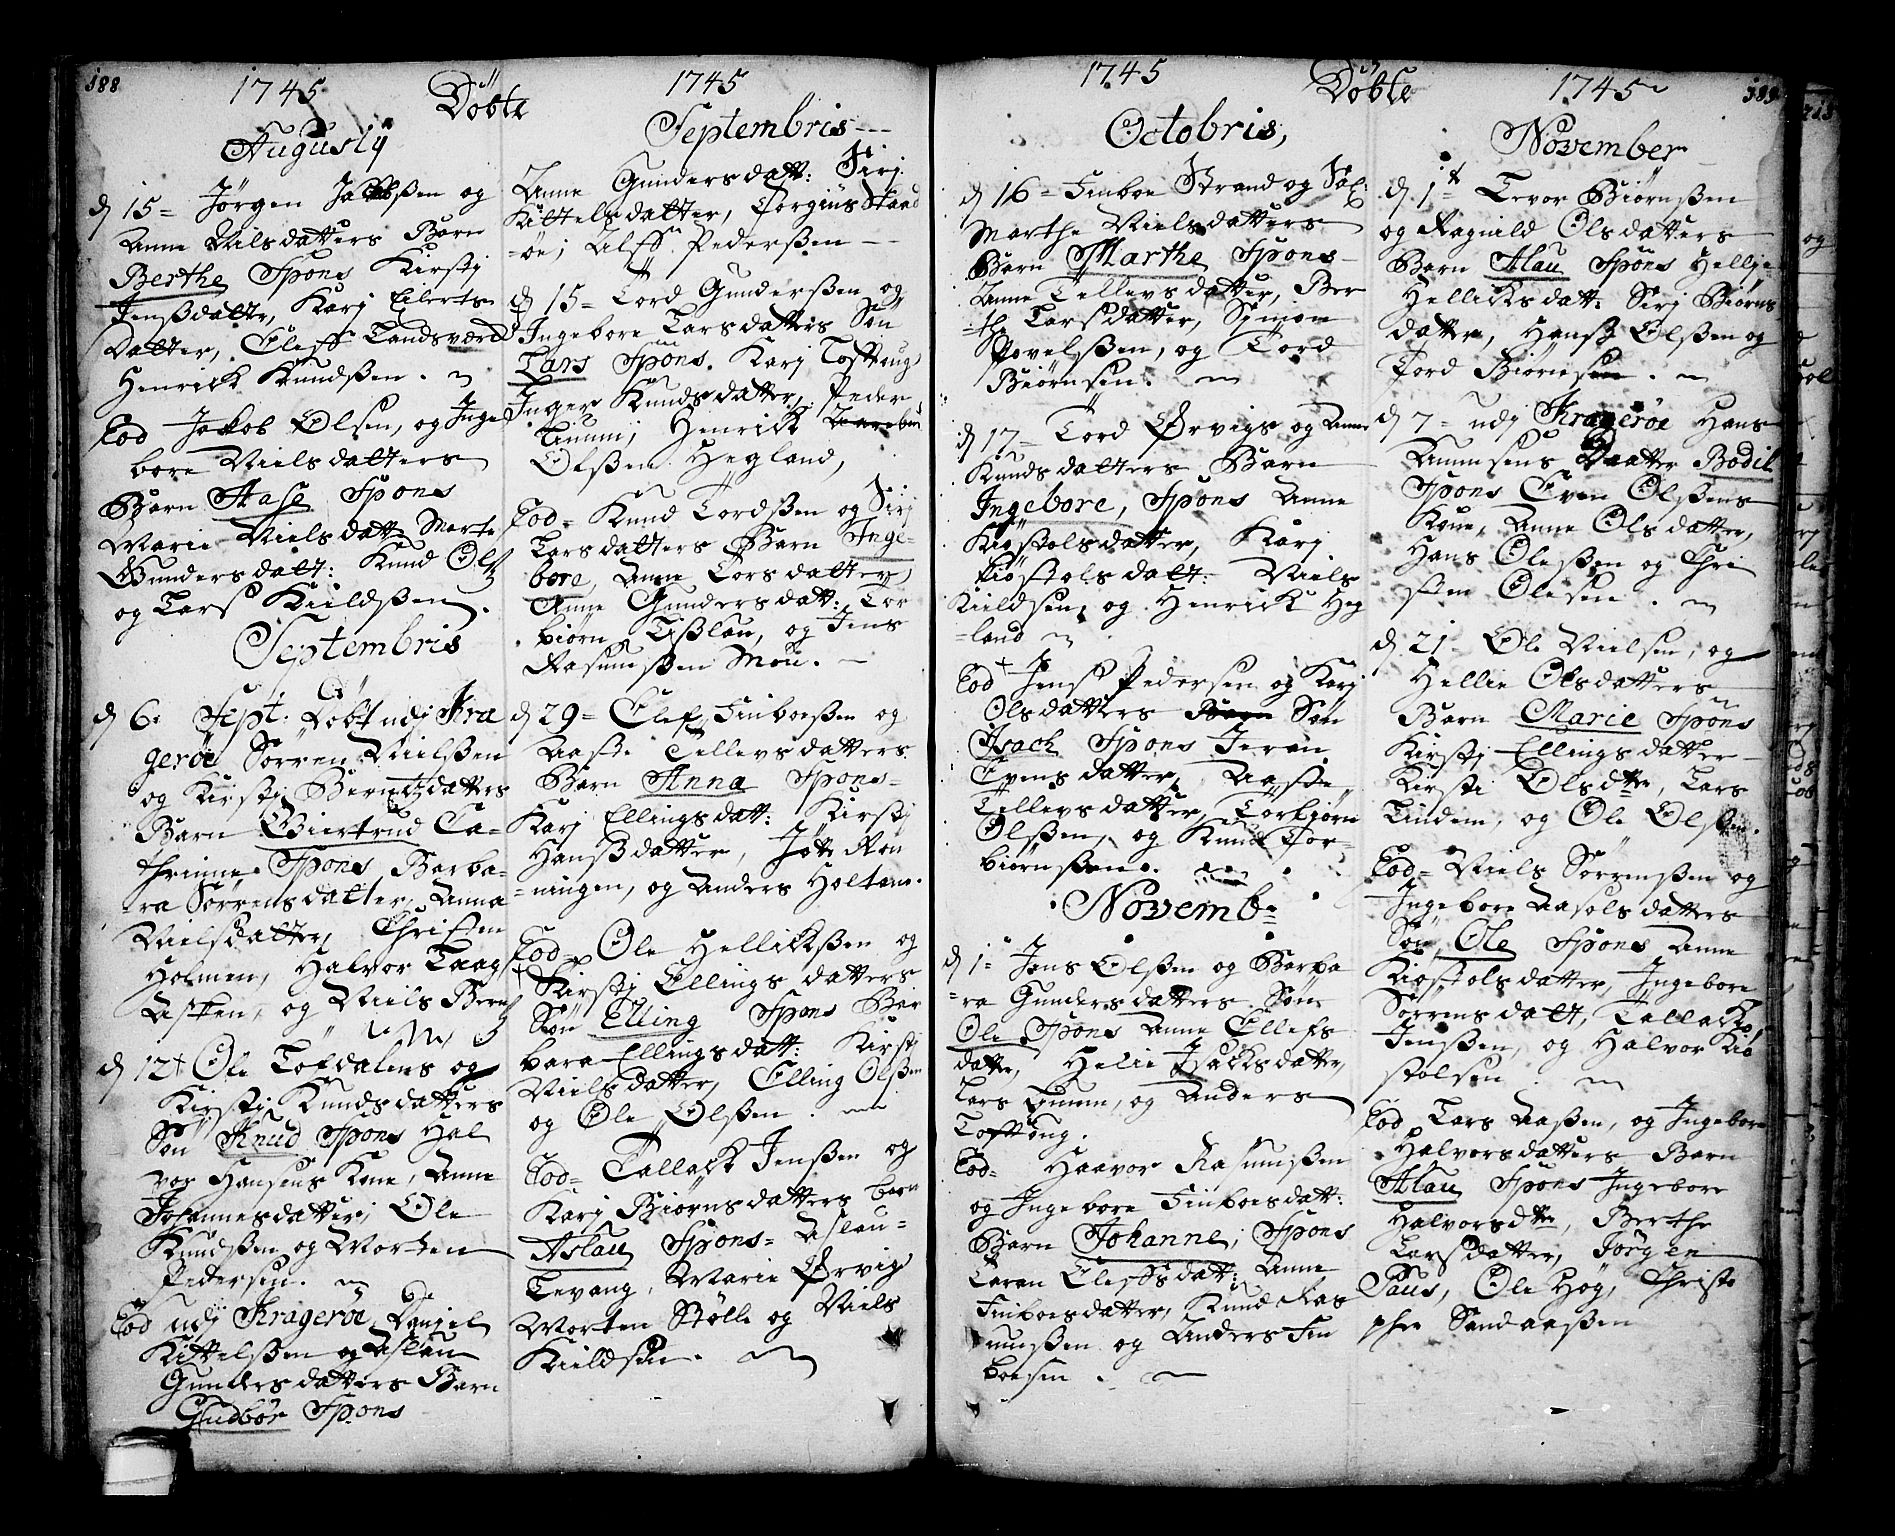 188
1745
Döbte
Augustij
d 15= Jörgen Jacobsen og
Anne Nilsdatters Barn
Berthe Spons Kirstj
Jensdatter, Karj Eilerts
Datter, Eleff Landsværd
Henrick Knudsßen.
Eod Jakob Olsen, og Inge
bore Nielsdatters
Barn Aase Spons
Marie Nielsdatt Marte
Gundersdatt: Knud Ols
og Lars Kieldsßen.
Septembris
d 6. Sept: Döbt udj Kra
geröe Sörren Nielsßen
og Kirstj Berntzdatters
Barn Giertrud Ca-
thrinne. Spons Barba-
ra Sörrensdatter, Anna
Nielsdatter, Christen
Holmen, Halvor Taag
Asken, og Niels Bernt
d 12t Ole Tofdalens og
Kirstj Knudsdatters
Sön Knud Spons Hal
vor Hansens Kone, Anne
Johannesdatter, Ole
Knudsßen og Morten
Pedersen.
Eod udj Krageröe Daniel
Kittelsßen og Aslau
Gundersdatters Barn
Gudbör Spons
1745
Septembris
Anne Gundersdatt: Sirj
Kittelsdatter, Torgius Staad
=öe; Ulff Pedersßen
d 15= Tord Gundersßen og
Ingebore Larsdatters Sön
Lars Spons. Karj Tofttug
Inger Knudsdatter, Peder
Tuum; Henrick
Olsßen Hegland,
Eod= Knud Tordsßen og Sirj
Larsdatters Barn Inge-
bore, Anne Torsdatter,
Anne Gundersdatt: Tor
biørn Tißlau, og Jens
Rasmusßen Mou.
d 29= Elef Finboesßen og
Aasti Tellevsdatters
Barn Anna Spons=
Karj Ellingsdatt: Kirstj
Hansßdatter, Rön
=ningen, og Anders Holtane.
Eod= Ole Hellicksßen og
Kirstj Ellingsdatters
Sön Elling Spons Bar
bara Ellingsdatt: Kirstj
Nielsdatter, Elling Olsßen
og Ole Olsßen.
Eod= Tallack Jensßen og
Karj Biörnsdatters barn
Aslau Spons= Aslau=
Tevang, Marie Ørvig
Morten Stölle og Niels
Kieldsßen.
1745
Döbte
Octobris,
d 16= Finboe Strand og Sal.
Marthe Nielsdatters
Barn Marthe Spons
Anne Tellevsdatter, Ber
=the Larsdatter, Symon
Povelsßen, og Tord
Biörnsen.
d 17= Tord Ørvigs og Anne
Knudsdatters Barn
Ingebore, Spons Anne
Kiöstolsdatter, Karj
Kiöstolsdatt: Niels
Kieldsßen, og Henrick Heg
=land
Eod Jens Pedersen og Karj
Olsdatters Barn Sön
Isach Spons Jeran
Evensdatter, Aaste
Tellevsdatter, Torbjørn
Olsßen, og Knud Tor-
biørnsßen.
Novemb:
d 1= Jens Olsßen og Barba
=ra Gundersdatters Sön
Ole Spons Anne Ellefs
datter, Helie Isacksdatter,
Lars Tuum, og Anders
Tofttong.
Eod= Haavor Rasmusßen
og Ingebore Finboesdatt:
Barn Johanne, Spons
Taran Eleffsdatt: Anne
Finboesdatter, Knud Ras
musßen og Anders Fin
boesen.
1745
189
November
d 1t Tevor Biörnsßen
og Ragnild Olsdatters
Barn Alau Spons Hellje
Hellicksdatt: Sirj Biörns
datter, Hansß Olsßen og
Tord Biörnsen.
d 7= udj Krageröe Hans
Amunsens Daatter Bodil
Spons Even Olsßens
Kone, Anne Olsdatter,
Hans Olesßen og Chri
sten Olesen.
d 21. Ole Nielsen, og
Hellie Olsdatters
Barn Marie Spons
Kirstj Ellingsdatter
Kirsti Olsdtter, Lars
Lindem, og Ole Olsßen.
Eod= Niels Sörrensßen og
Ingebore Aasolsdatters
Sön Ole Spons Anne
Kiöstolsdatter, Ingebore
Sörrensdatt, Tallack
Jensßen, og Halvor Kiö
stolsen.
Eod Lars Aasßen, og Ingebore
Halvorsdatters Barn
Alau Spons Ingebore
Halvorsdtter, Berthe
Larsdatter, Jörgen
Paus, Ole Höy, Christo
pher Sandaasßen